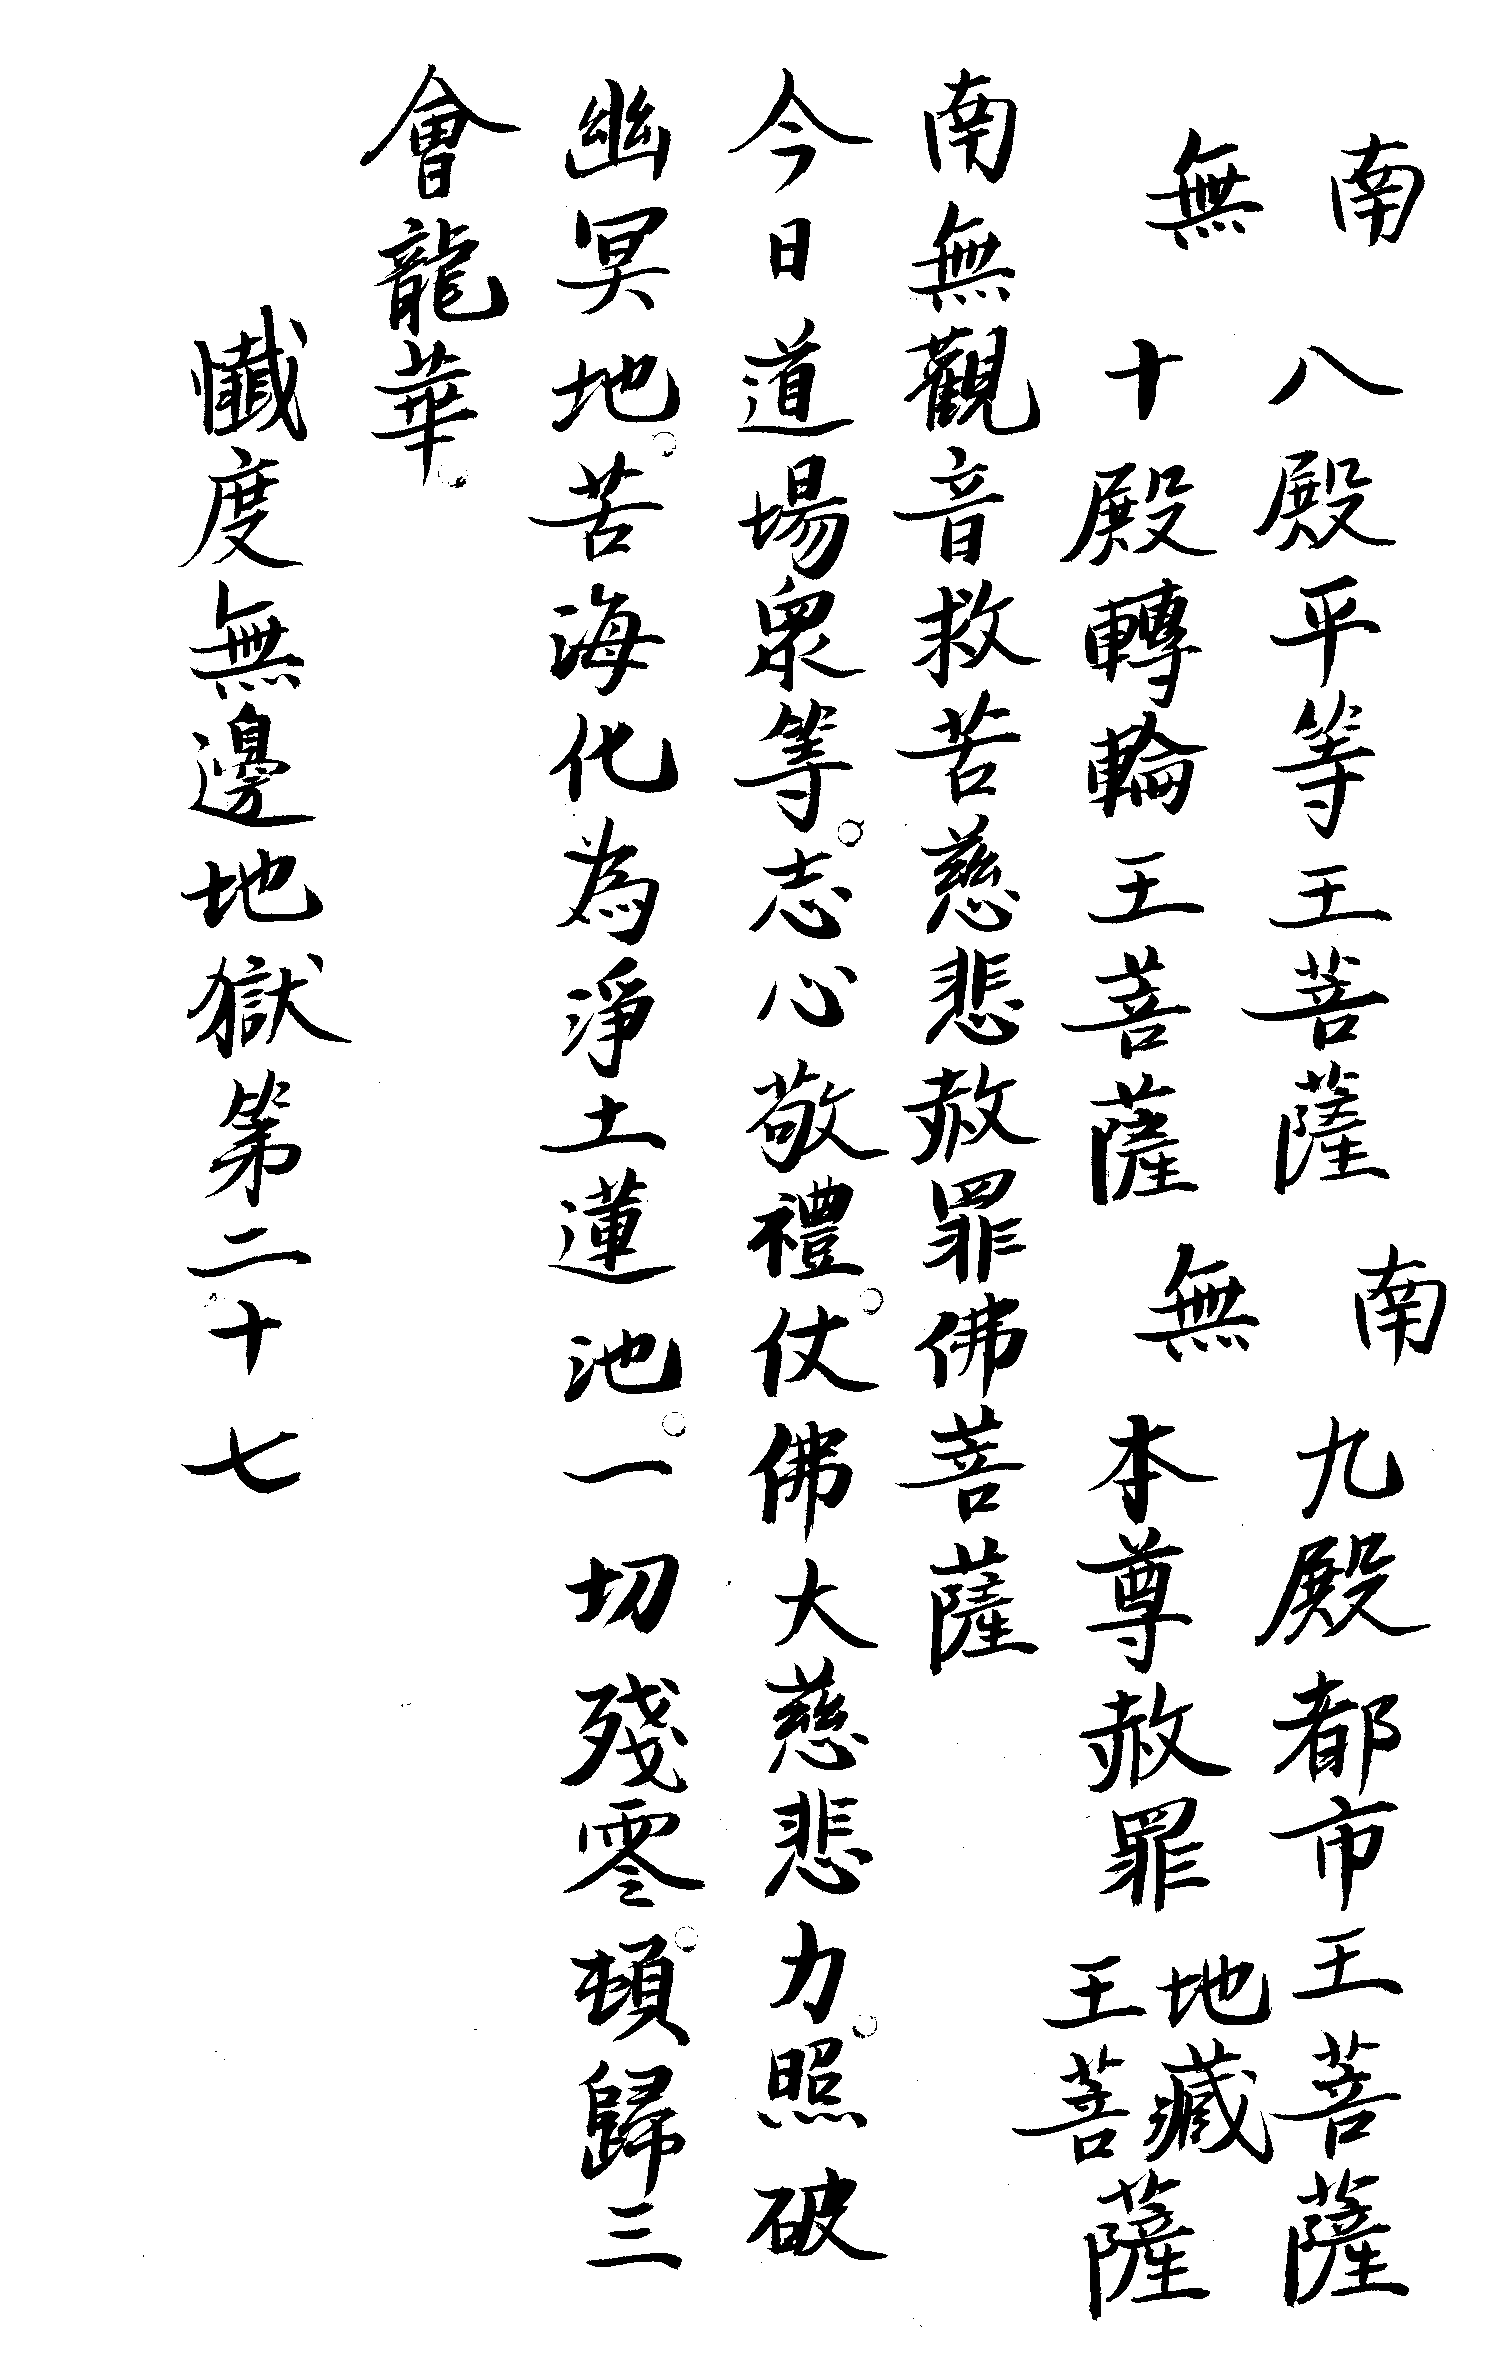 南　八殿平等王菩薩　南　九殿都市王菩薩
無　十殿轉輪王菩薩　無　本尊赦罪地藏王菩薩
南無觀音救苦慈悲赦罪佛菩薩
今日道場眾等。志心敬禮。仗佛大慈悲力。照破
幽冥地。苦海化為淨土蓮池。一切殘零。頓歸三
會龍華。
懺度無邊地獄第二十七